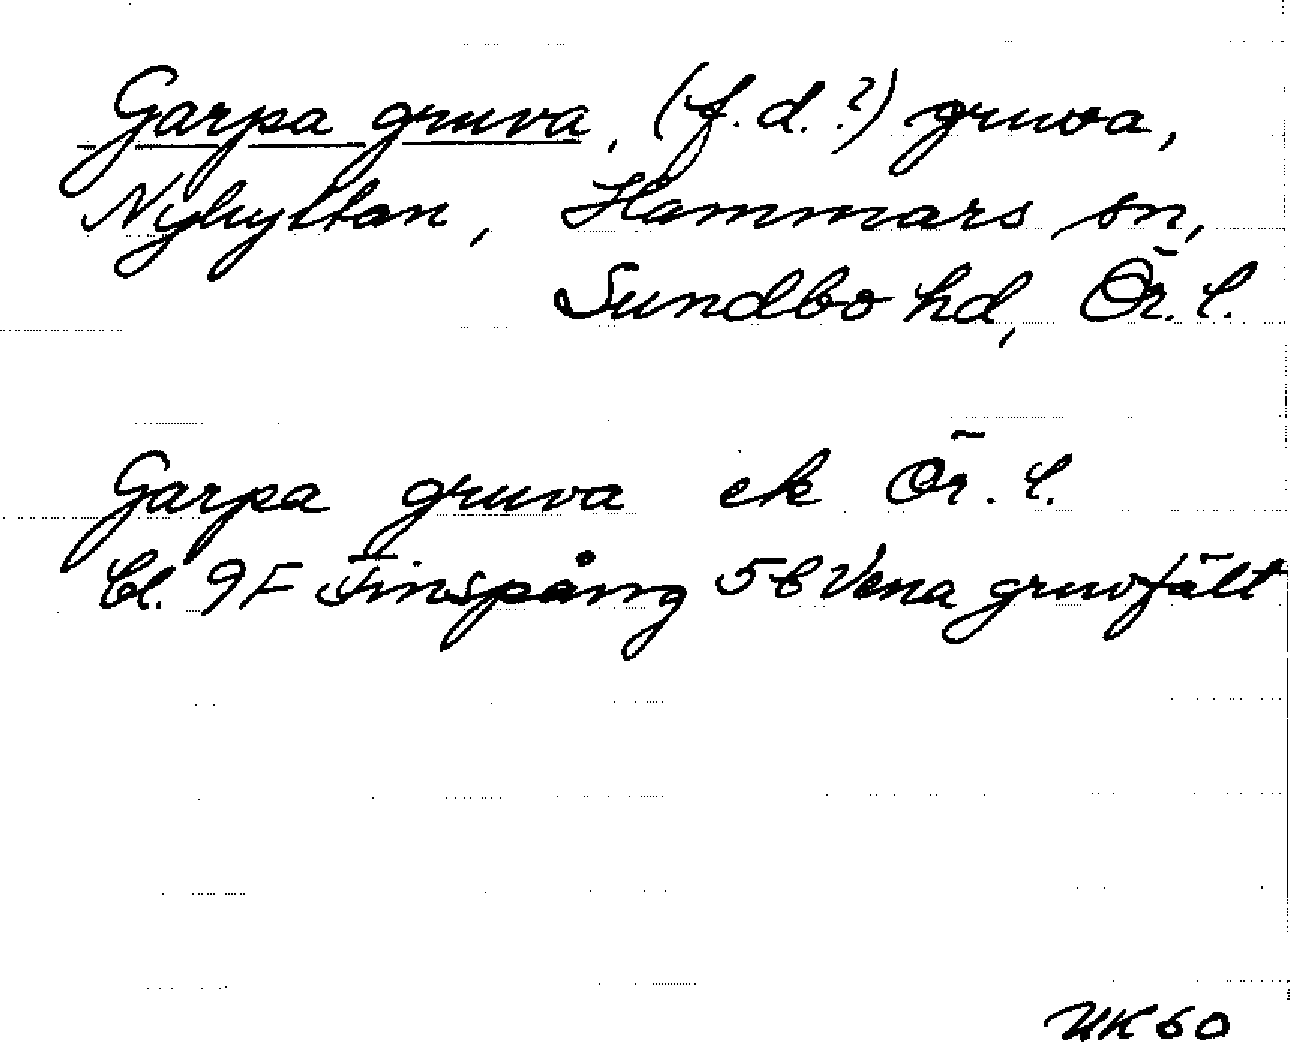 Garpa gruva, (f.d.?) gruva,
Nyhyttan, Hammars sn,
Sundbo hd, Ör. l.
Garpa gruva ek Ör. l.
bl. 9F Finspång 5b Vena gruvfält
UK60